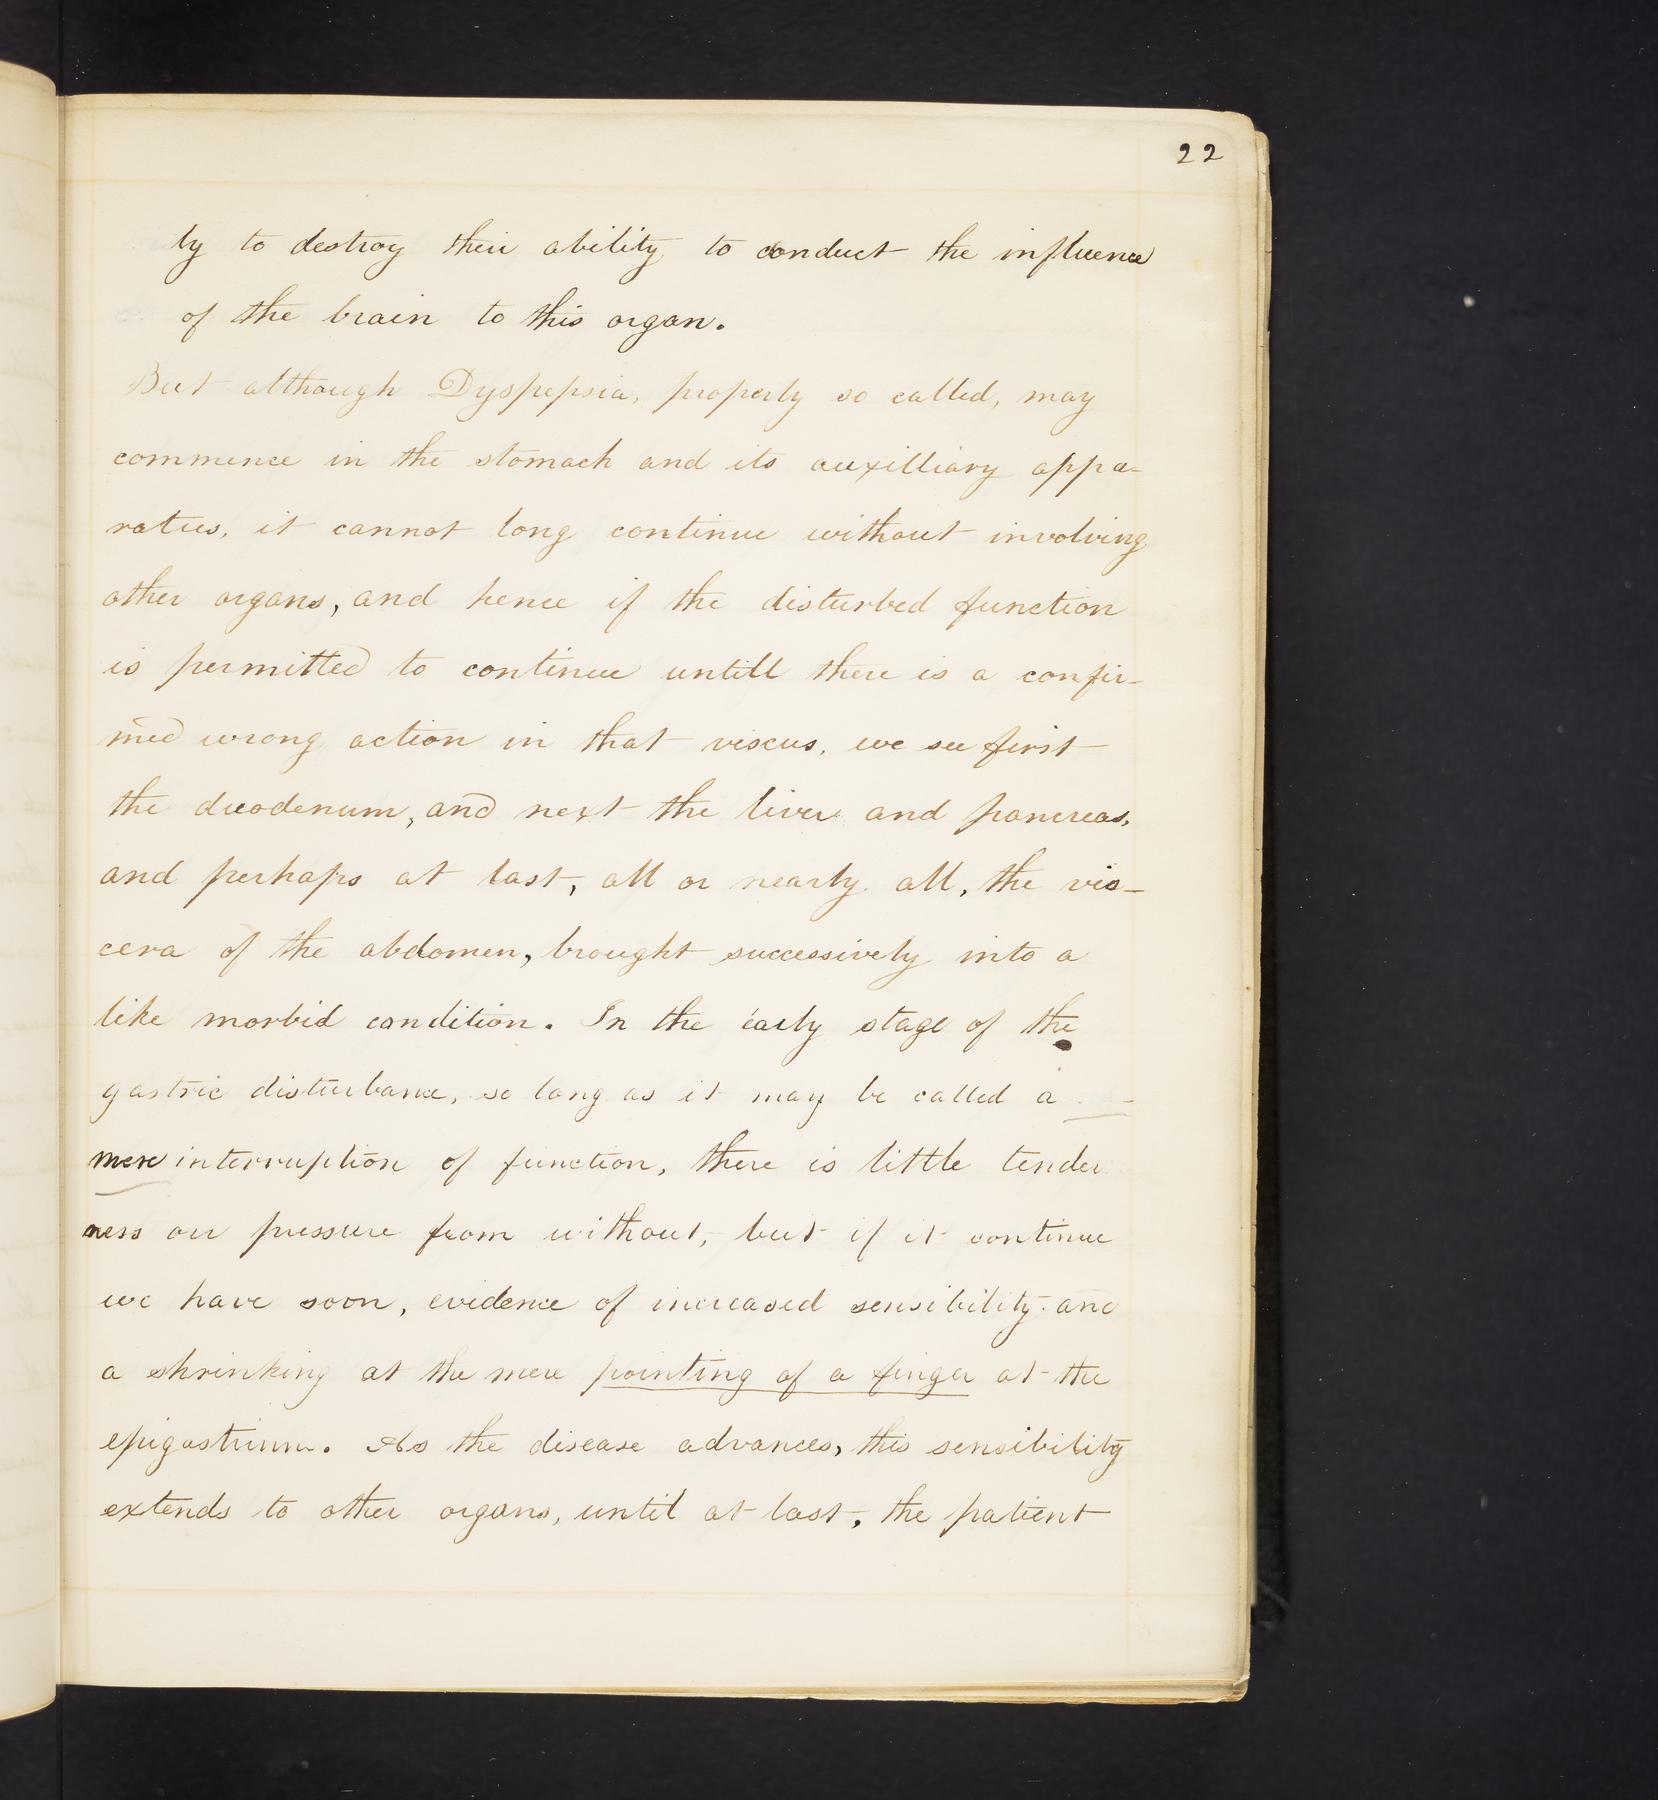 22
ly to destroy their ability to conduct the influence
of the brain to this organ.
But although Dyspepsia, properly so called, may
commence in the stomach and its auxilliary appa-
ratus, it cannot long continue without involving
other organs, and hence if the disturbed function
is permitted to continue untill there is a confir-
med wrong action in that viscus, we see first
the duodenum, and next the liver and pancreas,
and perhaps at last, all or nearly all, the vis-
cera of the abdomen, brought successively into a
like morbid condition. In the early stage of the
gastric disturbance, so long as it may be called a
mere interruption of function, there is little tender
ness on pressure from without, but if it continue
we have soon, evidence of increased sensibility and
a shrinking at the mere pointing of a finger at the
epigastrium. As the disease advances, this sensibility
extends to other organs, until at last, the patient